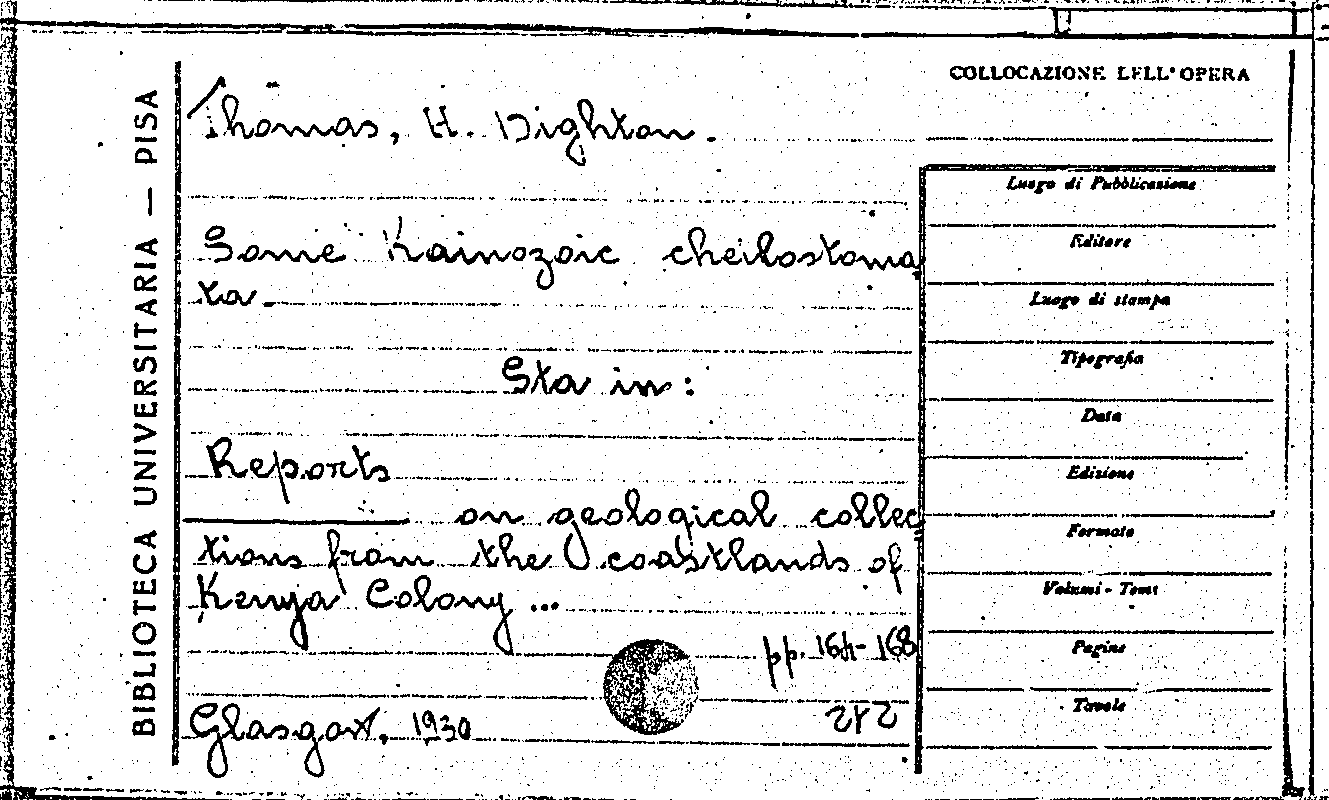 COLLOCAZIONE DELL'OPERA
BIBLIOTECA UNIVERSITARIA — PISA
Thomas, H. Dighton.
Some Kainozoic cheilostoma
ta.
Sta in:
Reports
on geological collec
tions from the coastlands of
Kenya Colony ...
pp. 164-168
Glasgow, 1930
Luogo di Pubblicazione
Editore
Luogo di stampa
Tipografia
Data
Edizione
Formato
Volumi - Tomi
Pagine
Tavole